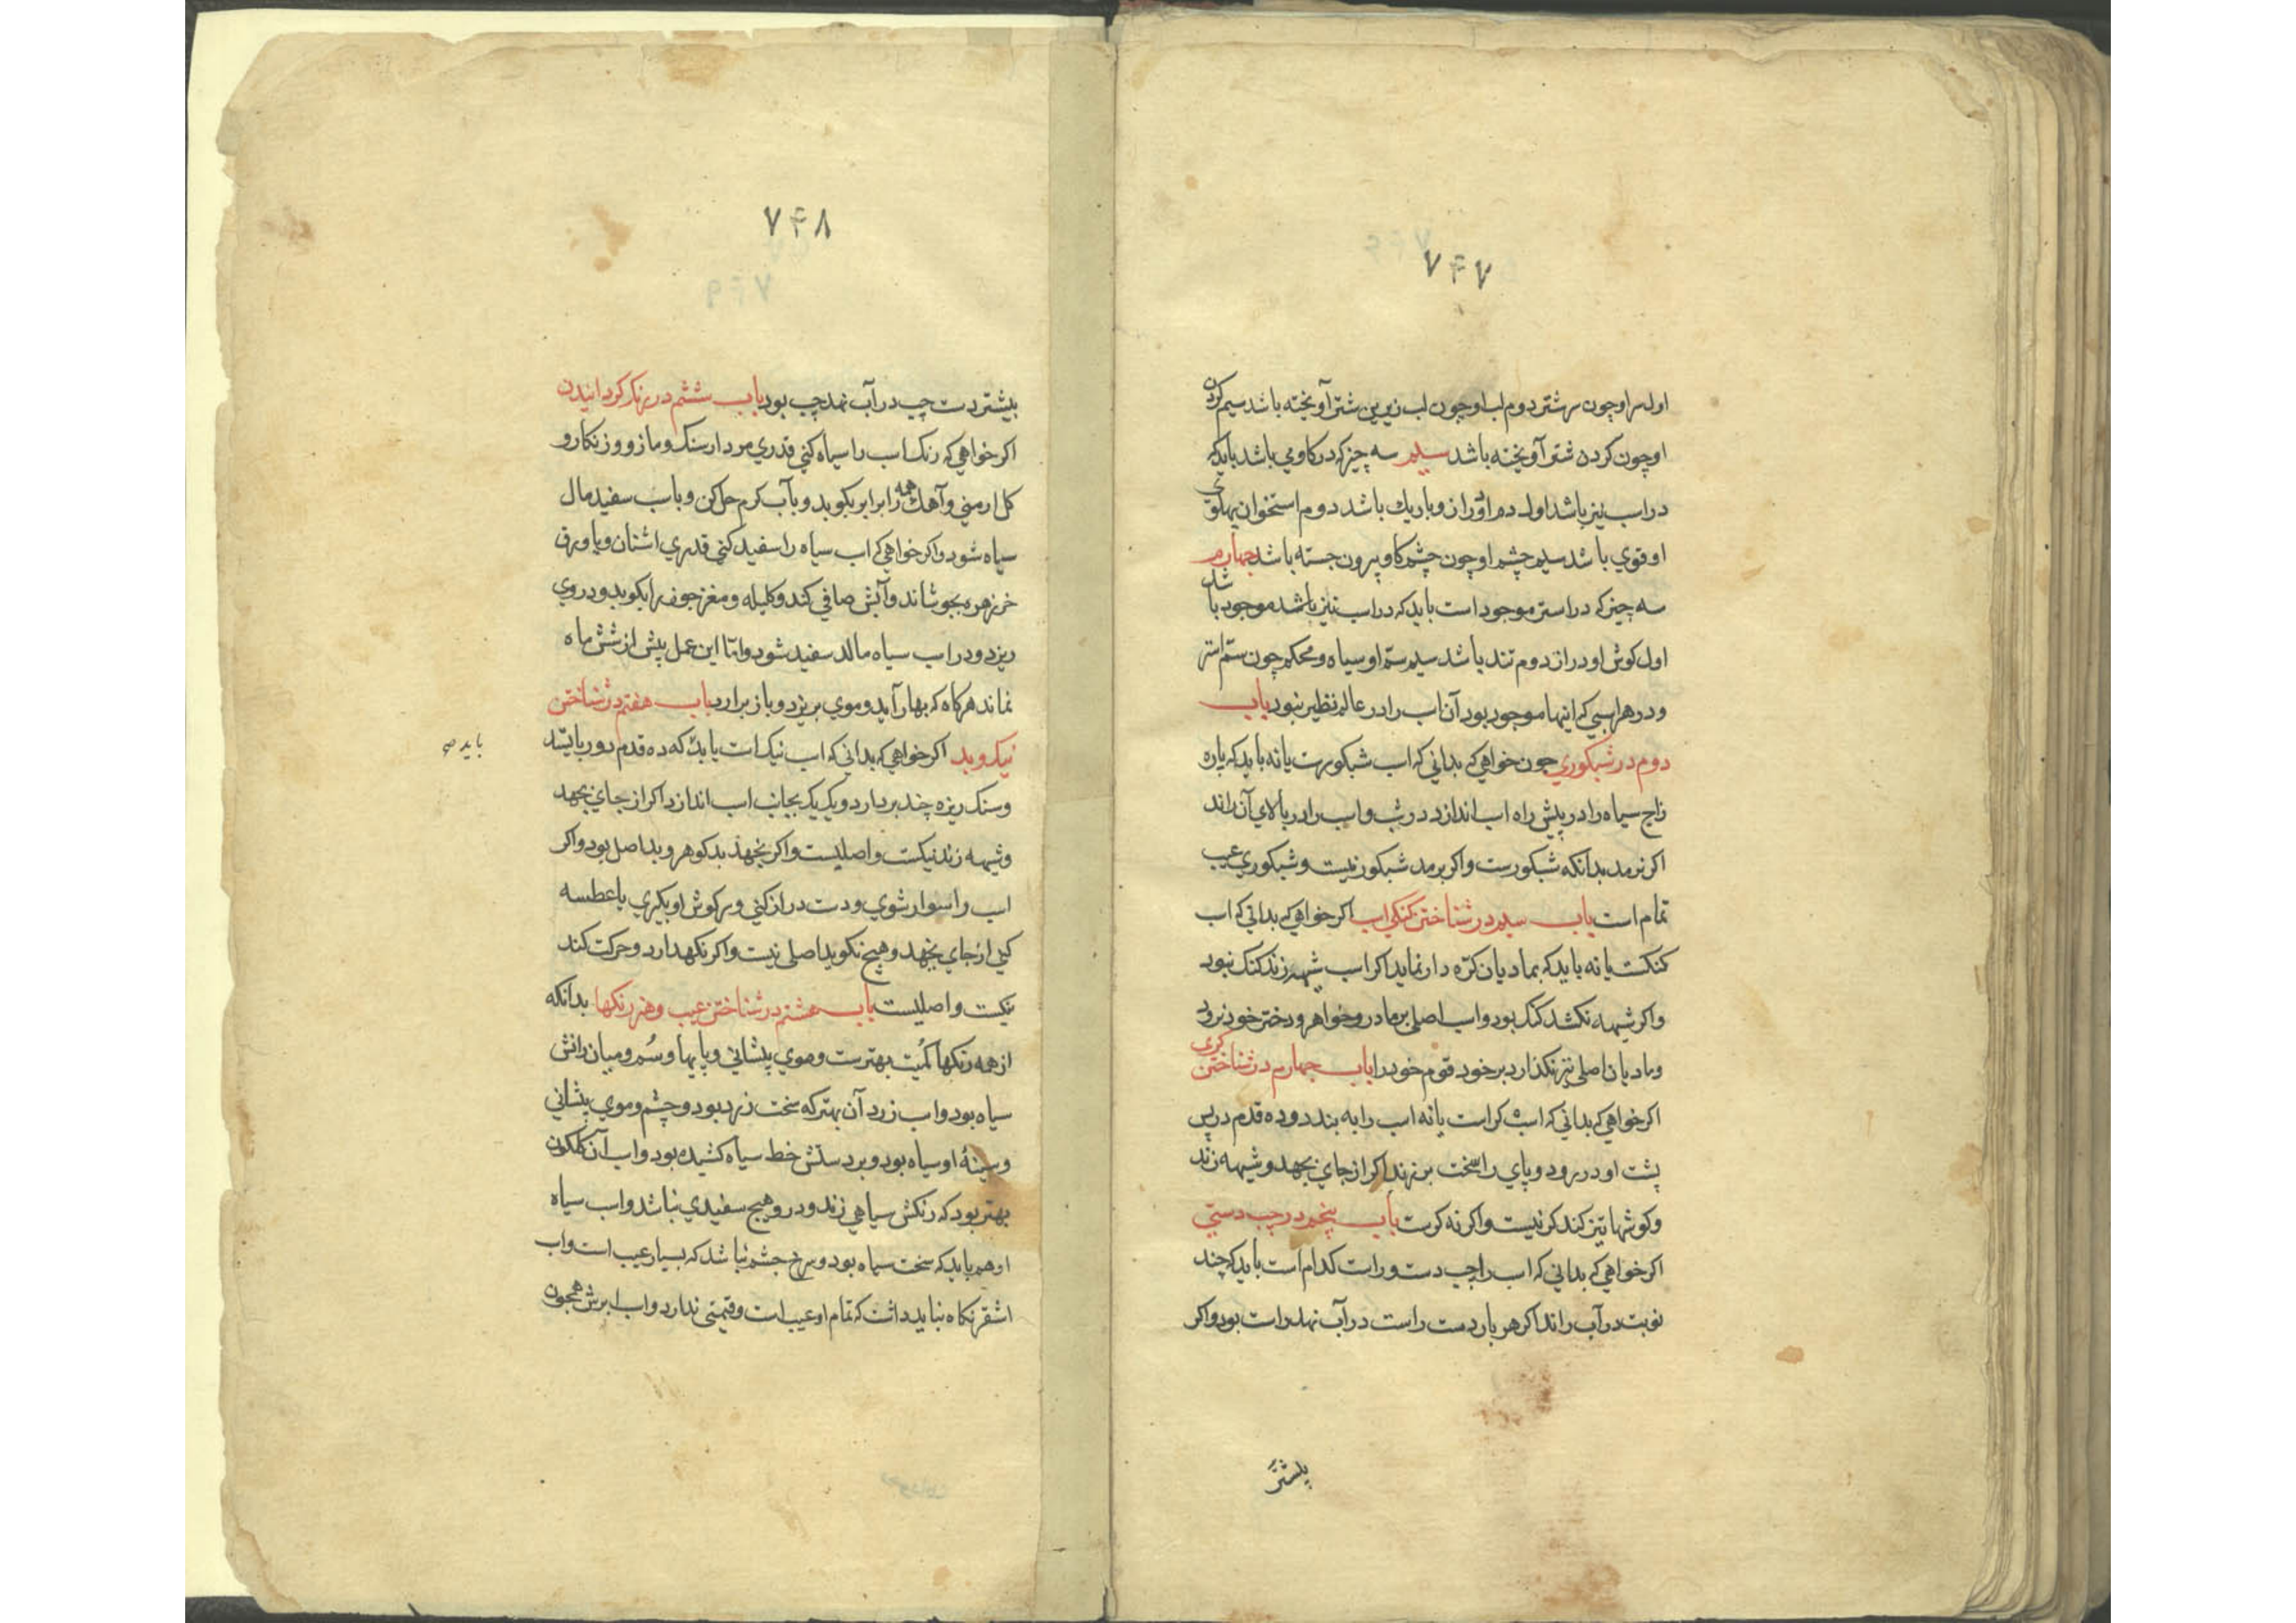 ۷۴۷
اول سر او چون سر شتر دوم لب او چون لب زیرین شتر آویخته باشد سیم کردن
او چون کردن شتر آویخته باشد سیم سه چیز که در کاو می باشد باید که
در اسب نیز باشد اول دم او دراز و باریك باشد دوم استخوان پهلوی
او قوي باشد سیم چشم او چون چشم کاو بیرون جسته باشد چهارم
سه چیز که در استر موجود است باید که در اسب نیز باشد موجود باشد
اول کوش او دراز دوم تند باشد سیم سم او سیاه و محکم چون سم استر
و در هر اسبی که اینها موجود بود آن اسب را در عالم نظیر نبود باب
دوم در شبکوري چون خواهي که بداني که اسب شبکورست یا نه باید که پاره
زاج سیاه را در پیش راه اسب اندازد در شب و اسب را در بالاي آن راند
اکر نرمد بدانکه شبکورست و اکر برمد شبکور نیست و شبکوري عیب
تمام است باب سیم در شناختن کنکی اسب اکر خواهي که بداني که اسب
کنکست یا نه باید که بمادیان کرّه دار نماید اکر اسب شیهه زند کنک نبود
و اکر شیهه نکشد کنک بود و اسب اصلي بر مادر و خواهر و دختر خود نرود
و مادیان اصلي نیز نکذارد بر خود قوم خود را باب چهارم در شناختن کری
اکر خواهي که بداني که اسب کر است یا نه اسب را به بندد و ده قدم در پس
پشت او در رود و پاي را سخت بر زند اکر از جاي بجهد و شیهه زند
و کوشها تیز کند کر نیست و اکر نه کرست باب پنجم در چپ دستي
اکر خواهي که بداني که اسب را چپ دست و راست کدام است باید که چند
نوبت در آب راند اکر هر بار دست راست در آب نهد راست بود و اکر
پیشتر
۷۴۸
بیشتر دست چپ در آب نهد چپ بود باب ششم در رنک کردانیدن
اکر خواهي که رنک اسب را سیاه کني قدري مردار سنک و مازو و زنکار و
کل ارمني و آهك همه را برابر بکوبد و بآب کرم حل کن و باسب سفید مال
سیاه شود و اکر خواهي که اسب سیاه را سفید کني قدري اشنان و یا ورق
خرزهره بجوشاند و آبش صافي کند و کلیله و مغز جوف را بکوبد و در وي
ریزد و در اسب سیاه مالد سفید شود و اما این عمل بیش از شش ماه
نماند هر کاه که بهار آید و موي بریزد و باز برارد باب هفتم در شناختن
نیك و بد اکر خواهي که بداني که اسب نیك است باید که ده قدم دور بایستد
باید صح
و سنک ریزه چند بردارد و یك یك بجانب اسب اندازد اکر از جاي بجهد
و شیهه زند نیکست و اصلیست و اکر نجهد بد کوهر و بد اصل بود و اکر
اسب را سوار شوي و دست دراز کني و سر کوش او بکیري یا عطسه
کني از جاي بجهد و هیچ نکوید اصلي نیست و اکر نکهدارد و حرکت کند
نیکست و اصلیست باب هشتم در شناختن عیب و هنر رنکها بدانکه
از همه رنکها کُمیت بهترست و موي پیشاني و پایها و سُم و میان رانش
سیاه بود و اسب زرد آن بهتر که سخت زرد بود و چشم و موي پیشاني
و سینهٔ او سیاه بود و بر دستش خط سیاه کشیده بود و اسب آن کلکون
بهتر بود که رنکش سیاهي زند و درو هیچ سفیدي نباشد و اسب سیاه
او هم باید که سخت سیاه بود و سرخ چشم نباشد که بسیار عیب است و اسب
اشقر نکاه نباید داشت که تمام او عیب است و قیمتي ندارد و اسب ابرش همچون